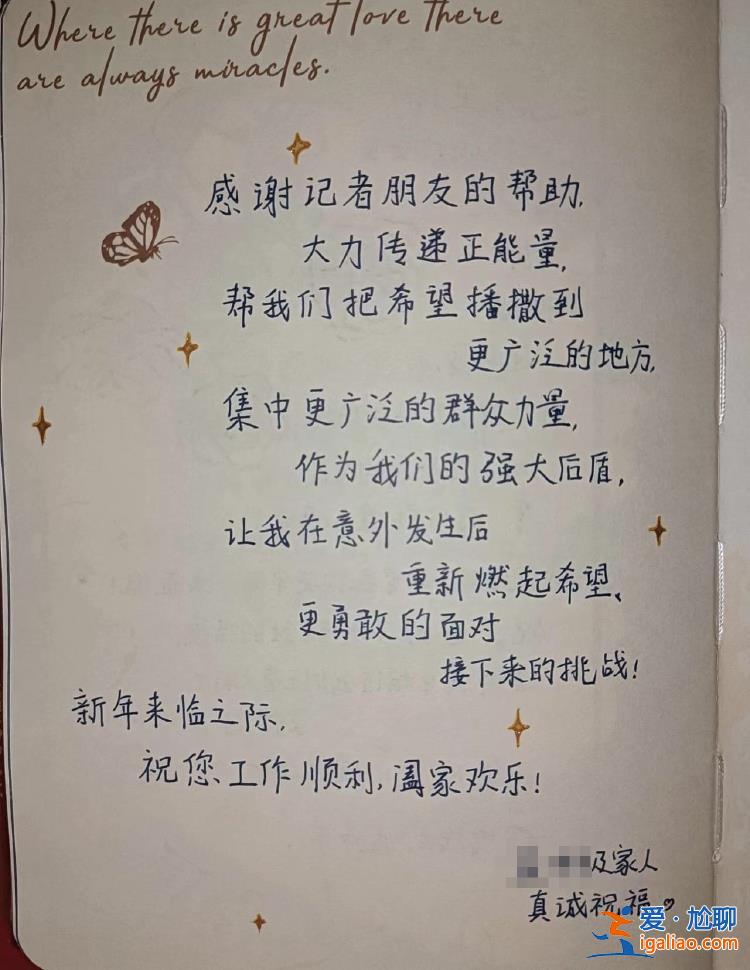 Where there is great love there
are always miracles.
感谢记者朋友的帮助,
大力传递正能量,
帮我们把希望播撒到
更广泛的地方,
集中更广泛的群众力量,
作为我们的强大后盾,
让我在意外发生后
重新燃起希望、
更勇敢的面对
接下来的挑战!
新年来临之际,
祝您、工作顺利,阖家欢乐!
及家人
真诚祝福
爱·尬聊
igaliao.com